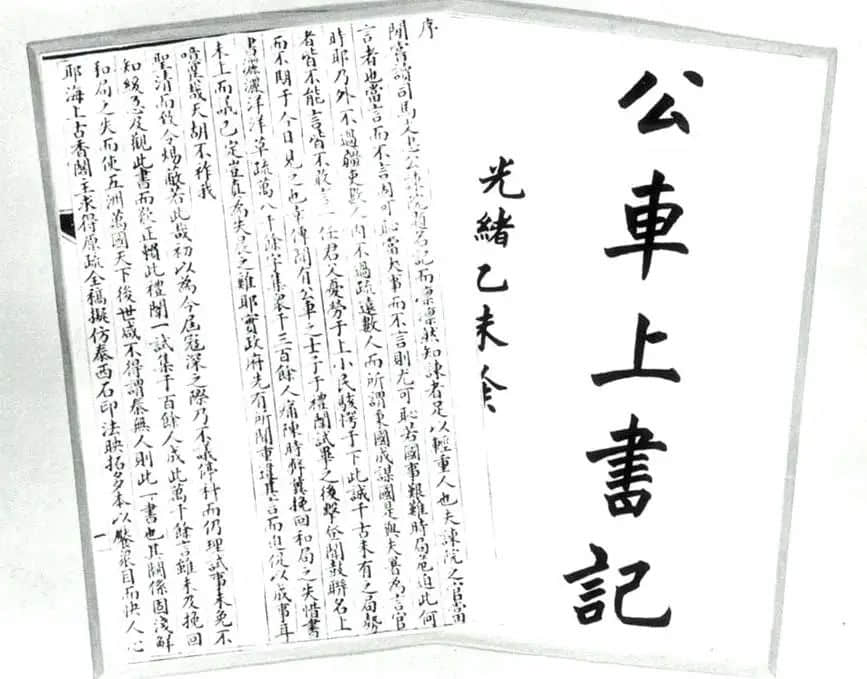 公車上書記
光緒乙未
序
聞嘗讀司馬文忠公諫院題名記而凜凜然知諫者足以輕重人也夫諫院之官當
言者也當言而不言固可恥當大事而不言則尤可恥若國事艱難時局危迫此何
時耶乃外不過疆吏數人內不過疏遠數人而所謂秉國成謀國是與夫署為言官
者皆不能言皆不敢言一任君父憂勞于上小民駭愕于下此誠千古未有之局勢
而不期于今日見之也幸傳聞有公車之士子于禮闈試畢之後擊登聞鼓聯名上
書灑灑洋洋草疏萬八千餘字集眾千三百餘人痛陳時弊冀挽回和局之失惜書
未上而議已定豈真為失晨之雞耶實政府先有所聞重違其言而迫促以成事耳
哉天胡不祚我
聖清而致令若此哉初以為今屆寇深之際乃不議停科而仍理試事未免不
知緩急及觀此書而欲正賴此禮闈一試集千百餘人成此萬千餘言雖未及挽回
和局之失而使五洲萬國天下後世咸不得謂秦無人則此一書也其關係固淺鮮
耶海上古香閣主求得原疏全稿擬仿泰西石印法映拓多本以餍眾目而快人心
一